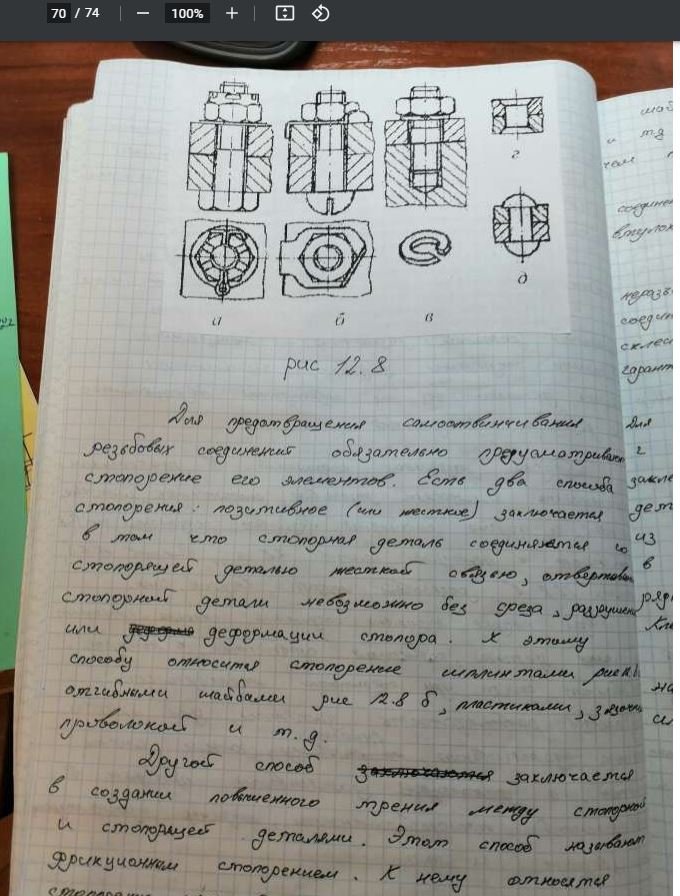 70 / 74
100%
г
д
а б в
рис 12.8
Для предотвращения самоотвинчивания
резьбовых соединений обязательно
стопорение его элементов. Есть два способа
стопорения: позитивное (или жесткое) заключается
в том что стопорная деталь соединяется со
стопорящей деталью жесткой связью,
стопорной детали невозможно без среза,
или деформации стопора. К этому
способу относится стопорение шплинтами
отгибными шайбами рис 12.8 б,
проволокой и т.д.
Другой способ заключается
в создании повышенного трения между стопорной
и стопорящей деталями. Этот способ называют
фрикционном стопорением. К нему относятся
шай
и т.д
чем
соедине
втулок
неразъ
соедин
склеи
гарант
Для
г
закле
дет
из
в
ряд
Кле
на